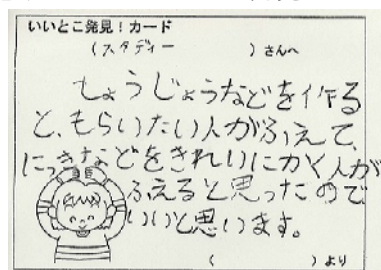 いいとこ発見！カード
（スタディー　　　　）さんへ
しょうじょうなどを作る
と、もらいたい人がふえて、
にっきなどをきれいにかく人が
ふえると思ったので
いいと思います。
（　　　　　　　）より